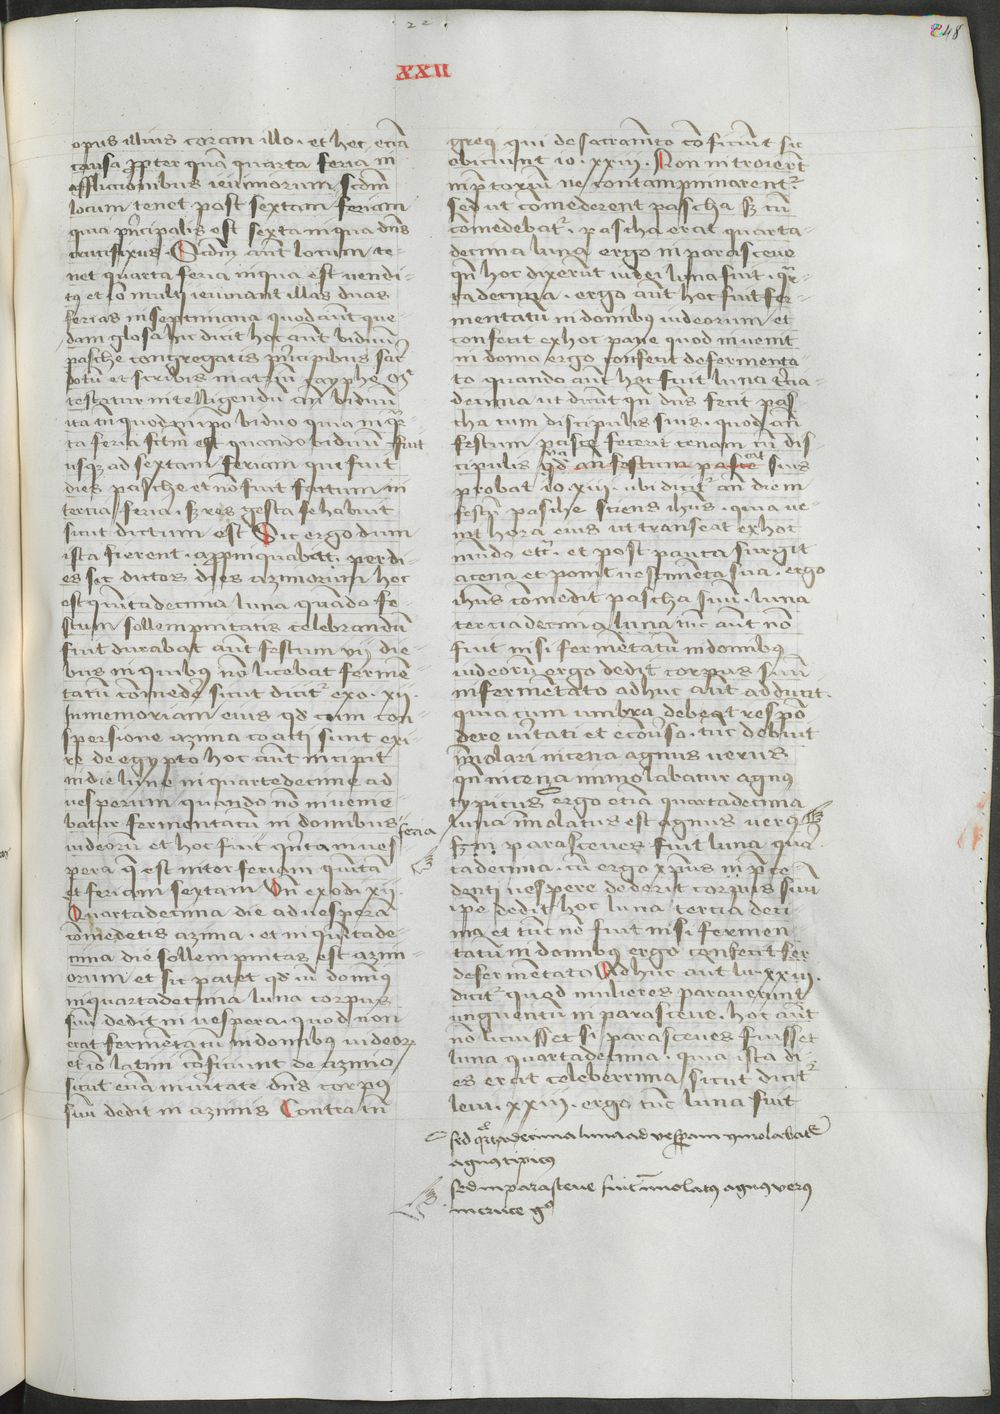 22
248
XXII
opus illius coram illo · et hec etiā
causa ꝓpter quā quarta feria in
afflictionibus ieiuniorum scdm
locum tenet post sextam feriam
quia pͥncipalis est sexta in qua dn̄s
crucifixus · Scdm̄ aūt locum te-
net quarta feria in qua est uendi-
tꝰ et iō multi ieiunant illas duas
ferias in septimana quod aūt que-
dam glosa hic dicit hoc aūt biduū
pasche congregatis pͥncipibus sac̄
dotū et scribis
testatur intelligendū
ita in quod in ipo biduo quia in qͣr-
ta feria fctm̄ est quando biduū fuit
usqꝫ ad sextam feriam que fuit
dies pasche et nō fuit factum in
tercia feria · sꝫ res gesta se habuit
sicut dictum est Sic ergo dum
ista fierent · appͥnquabat · per di-
es sic dictos dies azimorum hoc
est quītadecima luna quādo fe-
stum sollempnitatis celebrandū
fuit durabat aūt festum vij die-
bus in quibꝰ nō licebat fermē-
tatū comede͛ sicut dicitᷣ exo · xij ·
In memoriam eius qd̄ cum con-
spersione azima coacti sunt exi-
re de egypto hoc aūt incipit
in die lune in quartedecime ad
vesperum quando nō inuenie-
batur fermentatū in domibus
iudeorū et hoc fuit qͥnta in ues-
pera q̄ est inter feriam quītā
feria
et feriam sextam Vn̄ exodi xij ·
Quartadecima die ad uesperā
comedetis azima · et in quītade-
cima die sollempnitas est azim-
orum et sic patet qd̄ cū domīus
in quartadecima luna corpus
suū dedit in uespera · quod non
erat fermētatū in domibus iudeoꝝ
et iō latini cōficiunt de azimo
sicut etiā in uitate dn̄s corpꝰ
suū dedit in azimis Contra tn̄
greci qui de sacramēto cōficiūt sic
obiciunt io · xxiij · Non introierūt
in p̄toriū ne contampninarentᷣ
sed ut comederent pascha sꝫ cū
comedebatᷣ · pascha erat quarta-
decima luna ergo in parasceue
qn̄ hoc dixerūt iudei luna fuit · qͣr-
tadecima · ergo aūt hoc fuit fer-
mentatū in domibꝰ iudeorum et
confecit ex hoc pane quod inuenit
in domo ergo confecit de fermenta-
to quando aūt hoc fuit luna tͥcia-
decima ut dicūt qn̄ dn̄s fecit pas-
cha cum discipulis suis · quod an̄
festum pasce fecerit cenam cū dis-
cipulis qd̄ an̄ festum pasce suis
probat io xiij · ubi dicitᷣ an̄ diem
festū pasche sciens ihūs · quia ue-
nit hora eius ut transeat ex hoc
mūdo etc̄ · et post pauca surgit
a cena et ponit uestimēta sua · ergo
ihūs comedit pascha suū · luna
terciadecima luna tūc aūt nō
fuit nisi fermētatū in domibus
iudeorū ergo dedit corpus suū
in fermētato adhuc aūt adducit ·
quia cum umbra debeat respō-
dere u͛itati et econͣuerso · tūc debuit
īmolari in cena agnus uerus
qn̄ in cena immolabatur agnꝰ
typicus ergo etiā quartadecima
luna īmolatus est agnus uerꝰ
sꝫ in parasceues fuit luna quar-
tadecima · cū ergo xpūs in p̄ce-
denti uespere dederit corpus suū
ipe dedit hoc luna tercia deci-
ma et tūc nō fuit nisi fermen-
tatū in domibꝰ ergo confecit
de fermētato Adhuc aūt lu · xxiij ·
dicitᷣ quod mulieres parauerunt
unguentū in parasceue · hoc aūt
nō licuisset si parasceues fuisset
luna quartadecima · quia ista di-
es erat celeberrima sicut dicitᷣ
leui · xxiij · ergo tūc luna fuit
sed qͣrtadecima luna ad vesꝑam ymolabatᷣ
agnus tipicus
sed in parasceue fuit īmolatꝰ agnus verus
in cruce gͦ